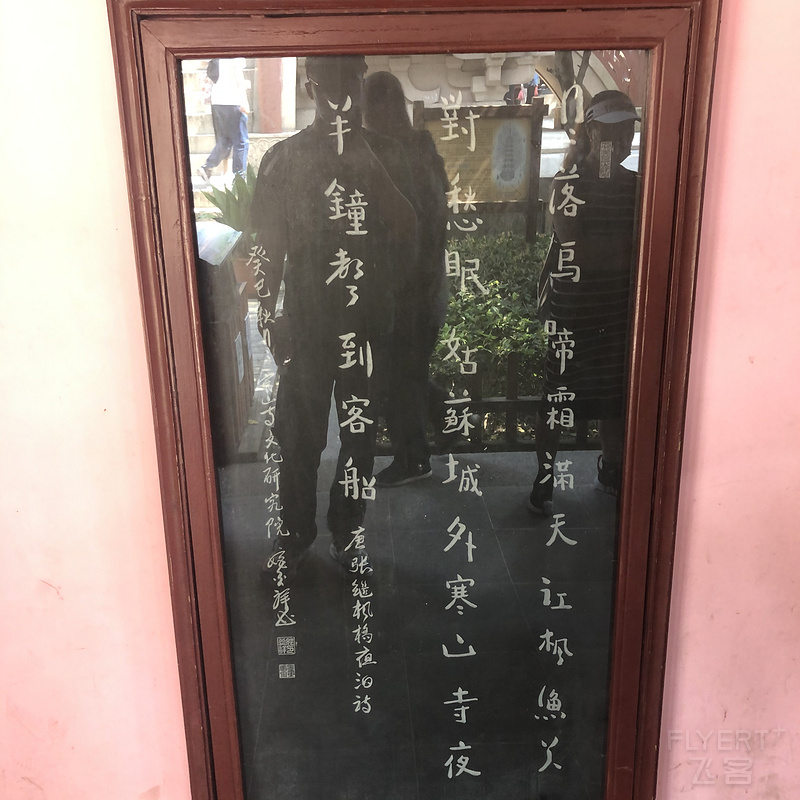 月落烏啼霜滿天江楓漁火
對愁眠姑蘇城外寒山寺夜
半鐘聲到客船 唐張繼楓橋夜泊詩
癸巳秋月 山寺文化研究院 姚炎祥书
FLYERT
飞客